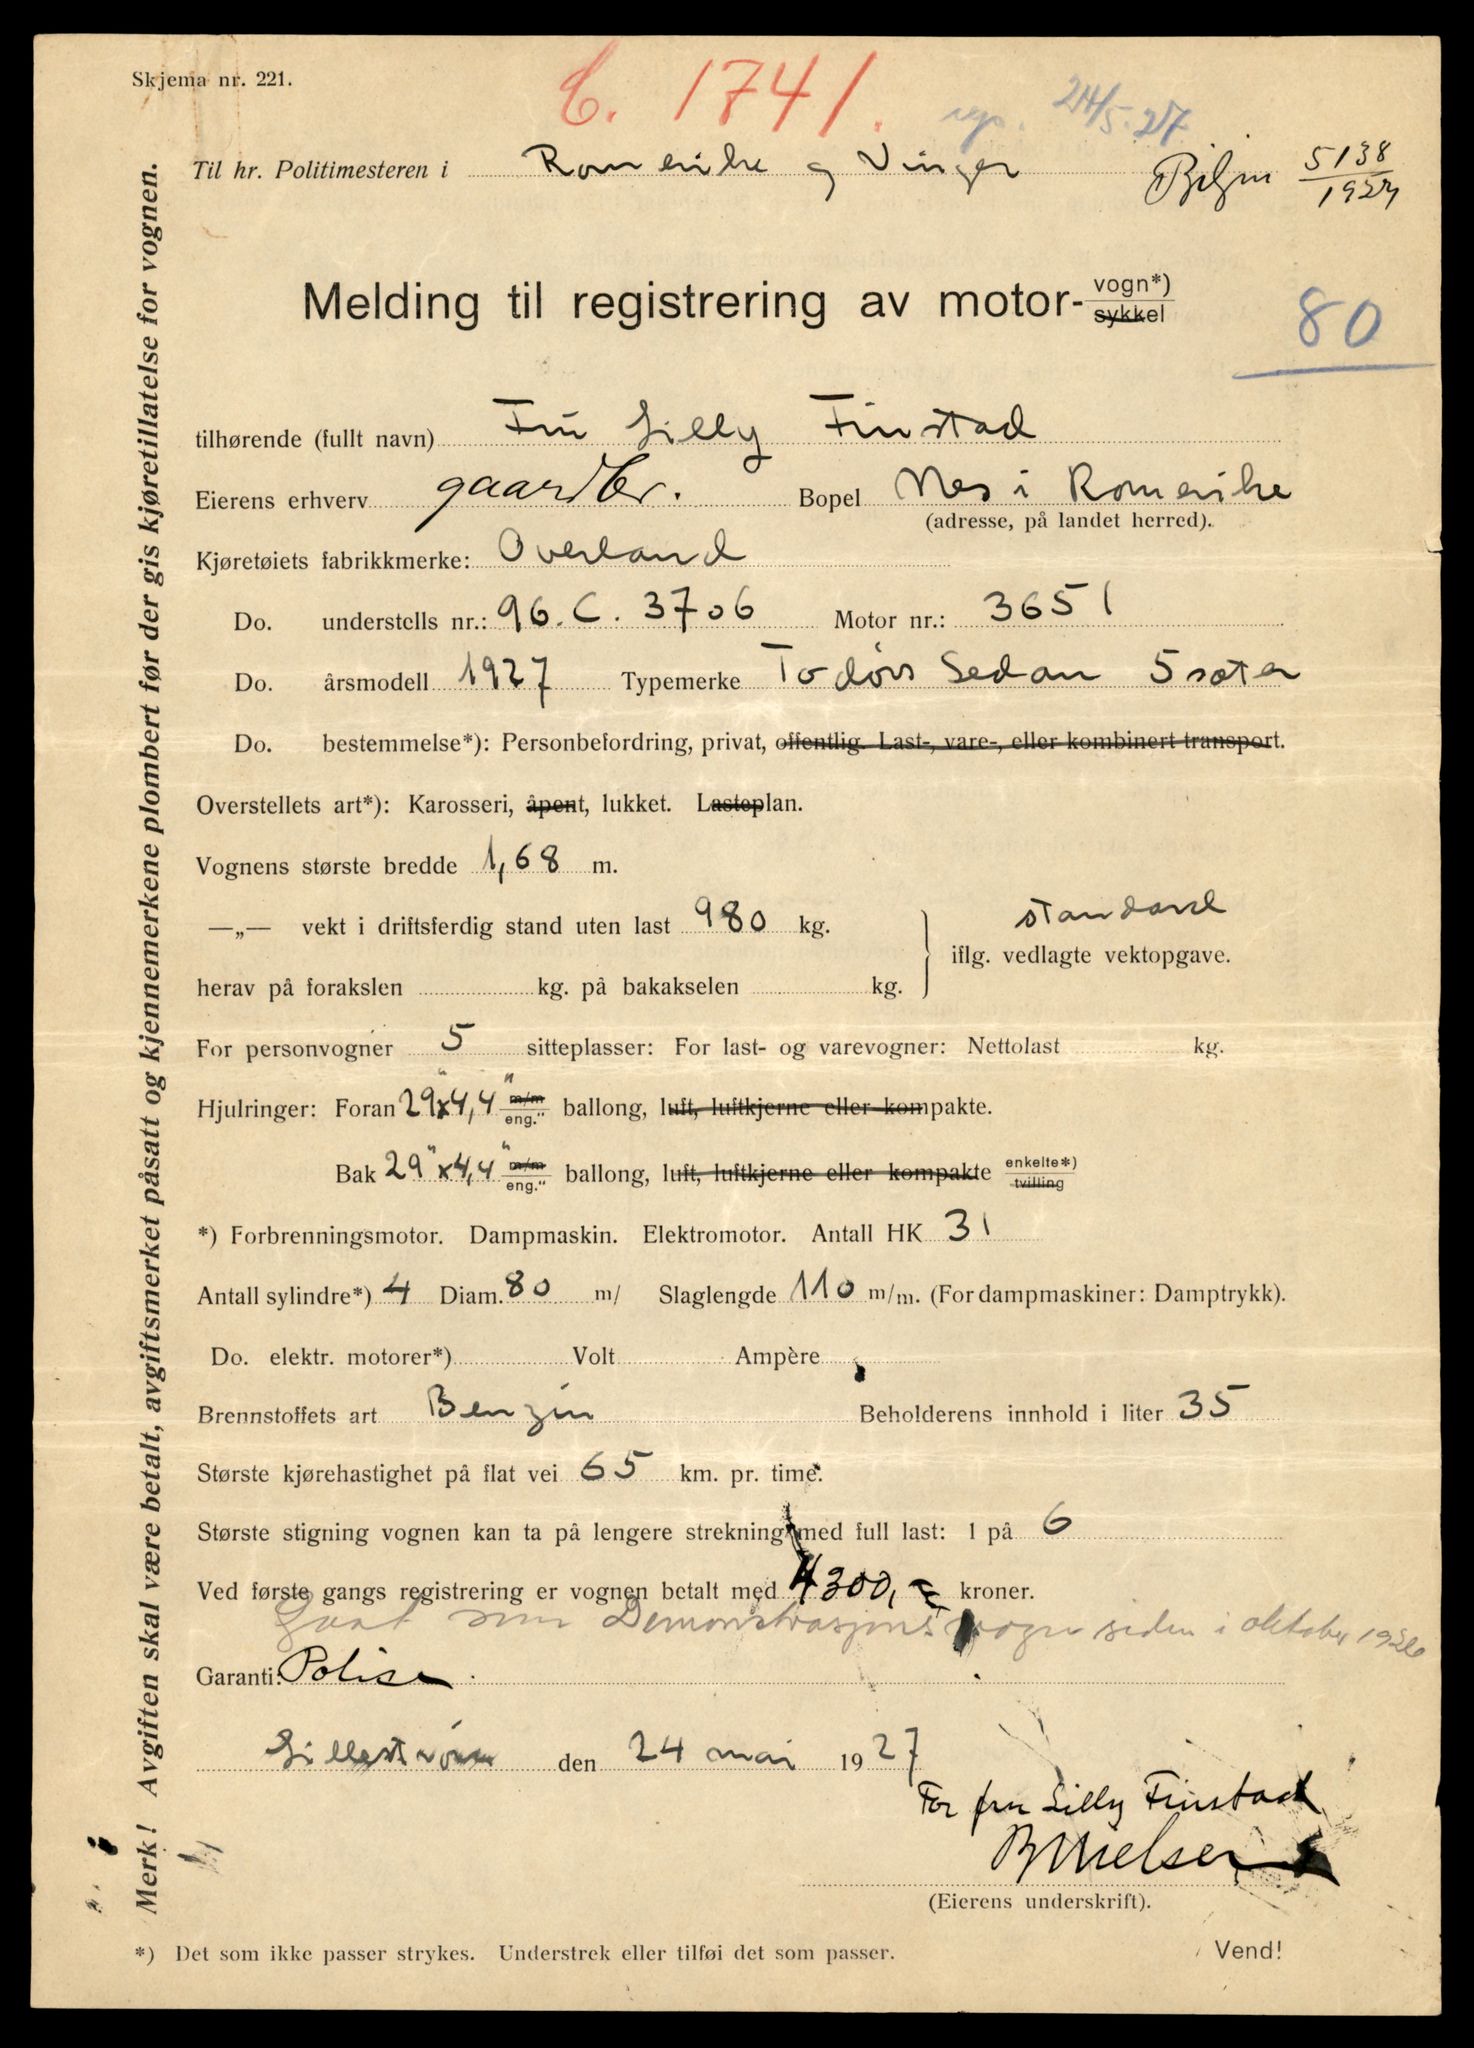 Skjema nr. 221.
C. 1741.
reg. 24/5.27
Til hr. Politimesteren i Romerike og Vinger
5138
1927
Melding til registrering av motor- vogn*)
sykkel
80
tilhørende (fullt navn) Fru Lilly Finstad
Eierens erhverv gaardbr. Bopel Nes i Romerike
(adresse, på landet herred).
Kjøretøiets fabrikkmerke: Overland
Do. understells nr.: 96.C. 3706 Motor nr.: 3651
Do. årsmodell 1927 Typemerke Todørs Sedan 5 sæter
Do. bestemmelse*): Personbefordring, privat, offentlig. Last-, vare-, eller kombinert transport.
Overstellets art*): Karosseri, åpent, lukket. Lasteplan.
Vognens største bredde 1,68 m.
—„— vekt i driftsferdig stand uten last 980 kg.
standard
iflg. vedlagte vektopgave.
herav på forakslen kg. på bakakselen kg.
For personvogner 5 sitteplasser: For last- og varevogner: Nettolast kg.
Hjulringer: Foran 29"x4,4" m/m eng." ballong, luft, luftkjerne eller kompakte.
Bak 29"x4,4" m/m eng." ballong, luft, luftkjerne eller kompakte enkelte*) tvilling
*) Forbrenningsmotor. Dampmaskin. Elektromotor. Antall HK 31
Antall sylindre*) 4 Diam. 80 m/ Slaglengde 110 m/m. (For dampmaskiner: Damptrykk).
Do. elektr. motorer*) Volt Ampère
Brennstoffets art Benzin Beholderens innhold i liter 35
Største kjørehastighet på flat vei 65 km. pr. time.
Største stigning vognen kan ta på lengere strekning med full last: 1 på 6
Ved første gangs registrering er vognen betalt med 4300,- kroner.
Gaat som Demonstrasjonsvogn siden i oktober 1926
Garanti: Polise
Lillestrøm den 24 mai 1927
For fru Lilly Finstad
B Nielsen
(Eierens underskrift).
*) Det som ikke passer strykes. Understrek eller tilføi det som passer.
Vend!
Merk! Avgiften skal være betalt, avgiftsmerket påsatt og kjennemerkene plombert før der gis kjøretillatelse for vognen.